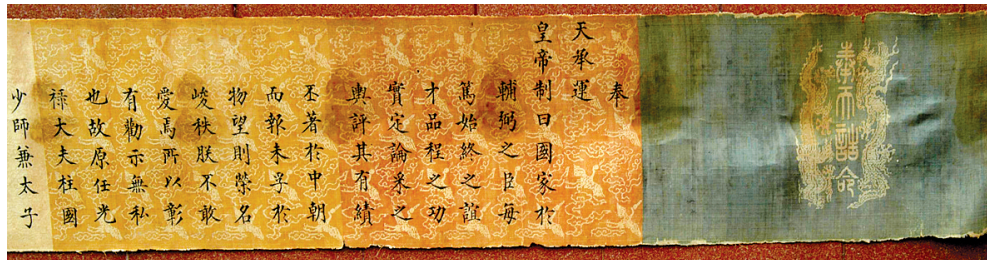 奉天誥命
奉
天承運
皇帝制曰國家於
輔弼之臣每
篤始終之誼
才品程之功
實定論采之
輿評其有績
丕著於中朝
而報未孚於
物望則榮名
峻秩朕不敢
愛焉所以彰
有勸示無私
也故原任光
祿大夫柱國
少師兼太子